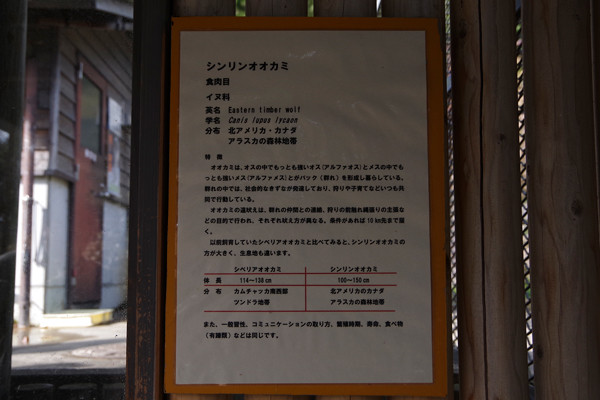 シンリンオオカミ
食肉目
イヌ科
英名 Eastern timber wolf
学名 Canis lupus lycaon
分布 北アメリカ・カナダ
アラスカの森林地帯
特 徴
オオカミは、オスの中でもっとも強いオス(アルファオス)とメスの中でも
っとも強いメス(アルファメス)とがパック(群れ)を形成し暮らしている。
群れの中では、社会的なきずなが発達しており、狩りや子育てなどいつも共
同で行動している。
オオカミの遠吠えは、群れの仲間との連絡、狩りの前触れ縄張りの主張な
どの目的で行われ、それぞれ吠え方が異なる。条件があれば10km先まで届
く。
以前飼育していたシベリアオオカミと比べてみると、シンリンオオカミの
方が大きく、生息地も違います。
シベリアオオカミ シンリンオオカミ
体 長 114〜138㎝ 100〜150㎝
分 布 カムチャッカ南西部 北アメリカのカナダ
ツンドラ地帯 アラスカの森林地帯
また、一般習性、コミュニケーションの取り方、繁殖時期、寿命、食べ物
(有蹄類)などは同じです。